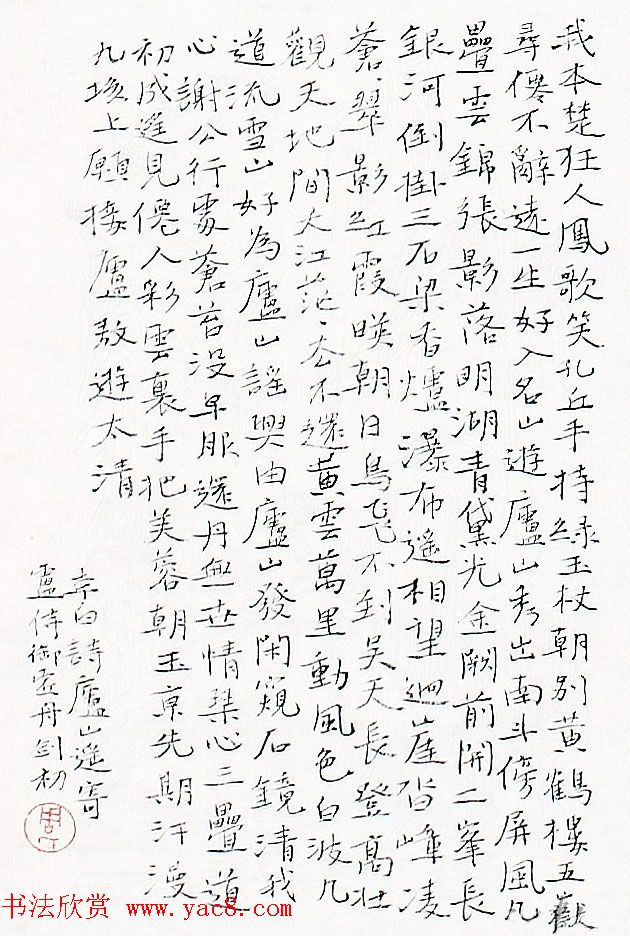 我本楚狂人鳳歌笑孔丘手持綠玉杖朝別黃鶴樓五嶽
尋僊不辭遠一生好入名山遊廬山秀出南斗傍屏風九
疊雲錦張影落明湖青黛光金闕前開二峯長
銀河倒掛三石梁香爐瀑布遙相望迴崖沓嶂凌
蒼蒼翠影紅霞暎朝日鳥飛不到吳天長登高壯
觀天地間大江茫茫去不還黃雲萬里動風色白波九
道流雪山好為廬山謠興由廬山發閑窺石鏡清我
心謝公行處蒼苔没早服還丹無世情琴心三疊道
初成遙見僊人彩雲裏手把芙蓉朝玉京先期汗漫
九垓上願接盧敖遊太清
李白詩廬山遙寄
盧侍御虛舟劍初
书法欣赏 www.yac8.com